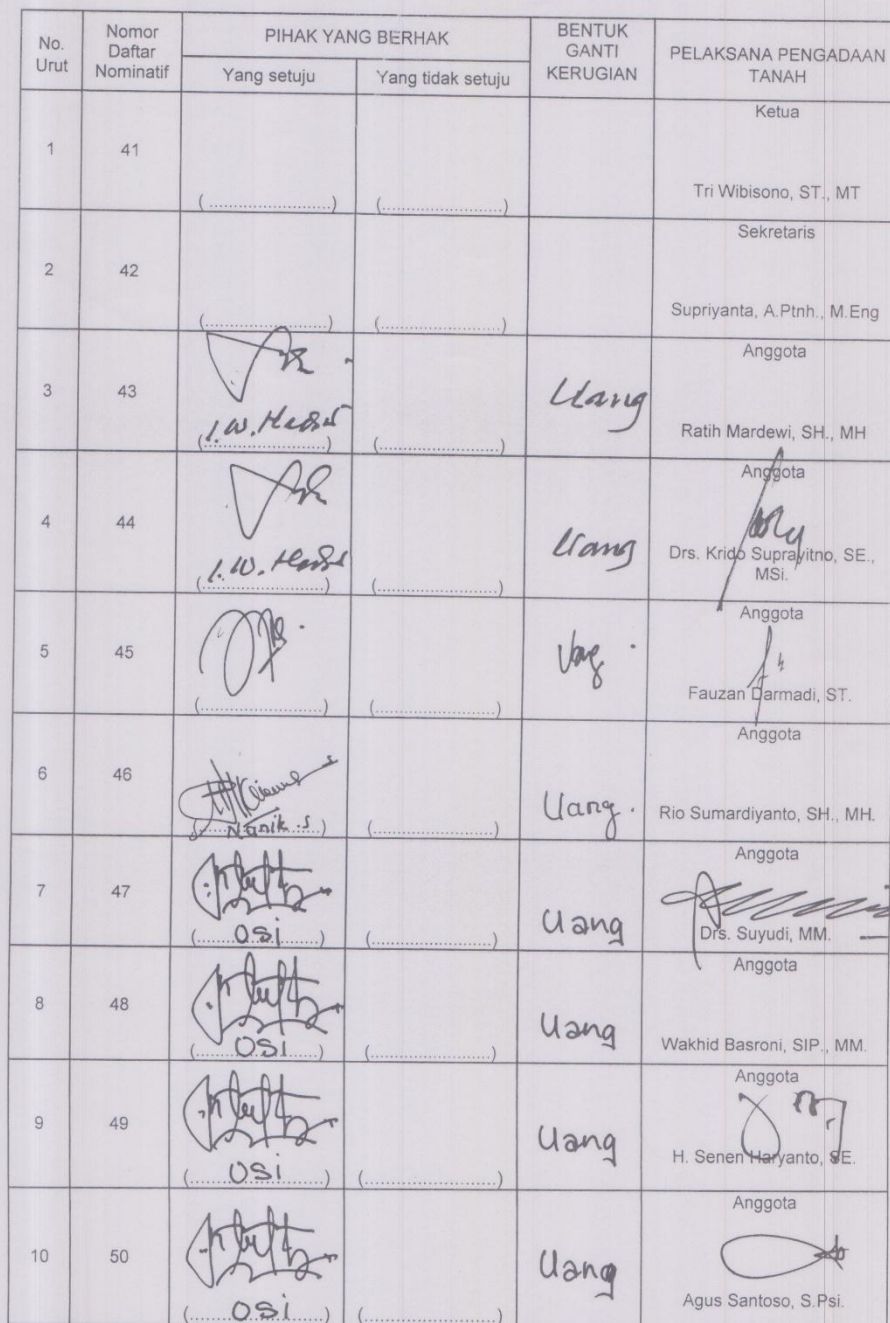 No.
Urut
Nomor
Daftar
Nominatif
PIHAK YANG BERHAK
Yang setuju
Yang tidak setuju
BENTUK
GANTI
KERUGIAN
PELAKSANA PENGADAAN
TANAH
1
41
(........................)
(........................)
Ketua
Tri Wibisono, ST., MT
2
42
(........................)
(........................)
Sekretaris
Supriyanta, A.Ptnh., M.Eng
3
43
(........................)
(........................)
Uang
Anggota
Ratih Mardewi, SH., MH
4
44
(........................)
(........................)
Uang
Anggota
Drs. Krido Suprayitno, SE.,
MSi.
5
45
(........................)
(........................)
Uang
Anggota
Fauzan Darmadi, ST.
6
46
Nanik.S
(........................)
Uang.
Anggota
Rio Sumardiyanto, SH., MH.
7
47
(........OSi........)
(........................)
Uang
Anggota
Drs. Suyudi, MM.
8
48
(........OSi........)
(........................)
Uang
Anggota
Wakhid Basroni, SIP., MM.
9
49
(........OSi........)
(........................)
Uang
Anggota
H. Senen Haryanto, SE.
10
50
(........OSi........)
(........................)
Uang
Anggota
Agus Santoso, S.Psi.